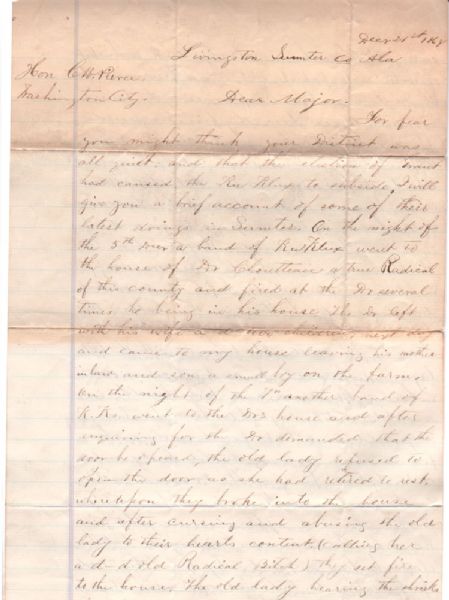 Decr 21st 1868
Livingston Sumter Co Ala
Hon C W Pierce
Washington City.
Dear Major.
For fear
you might think your District was
all quiet. and that the election of Grant
had caused the Ku Klux to subside, I will
give you a brief account of some of their
latest doings in Sumter. On the night of
the 5th Decr a band of Ku Klux went to
the house of Dr Chouttеau a true Radical
of this county and fired at the Dr several
times he being in his house The Dr left
with his wife children next day
and came to my house leaving his mother
in law and son a small boy on the farm.
On the night of the 7th another band of
K. Ks. went to the Drs house and after
enquiring for the Dr demanded that the
door be opened, the old lady refused to
open the door as she had retired to rest,
whereupon they broke into the house
and after cursing and abusing the old
lady to their hearts content, (calling her
a d—d old Radical Bitch) they set fire
to the house. The old lady hearing the